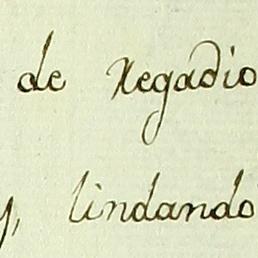 de Regadio
y, lindando